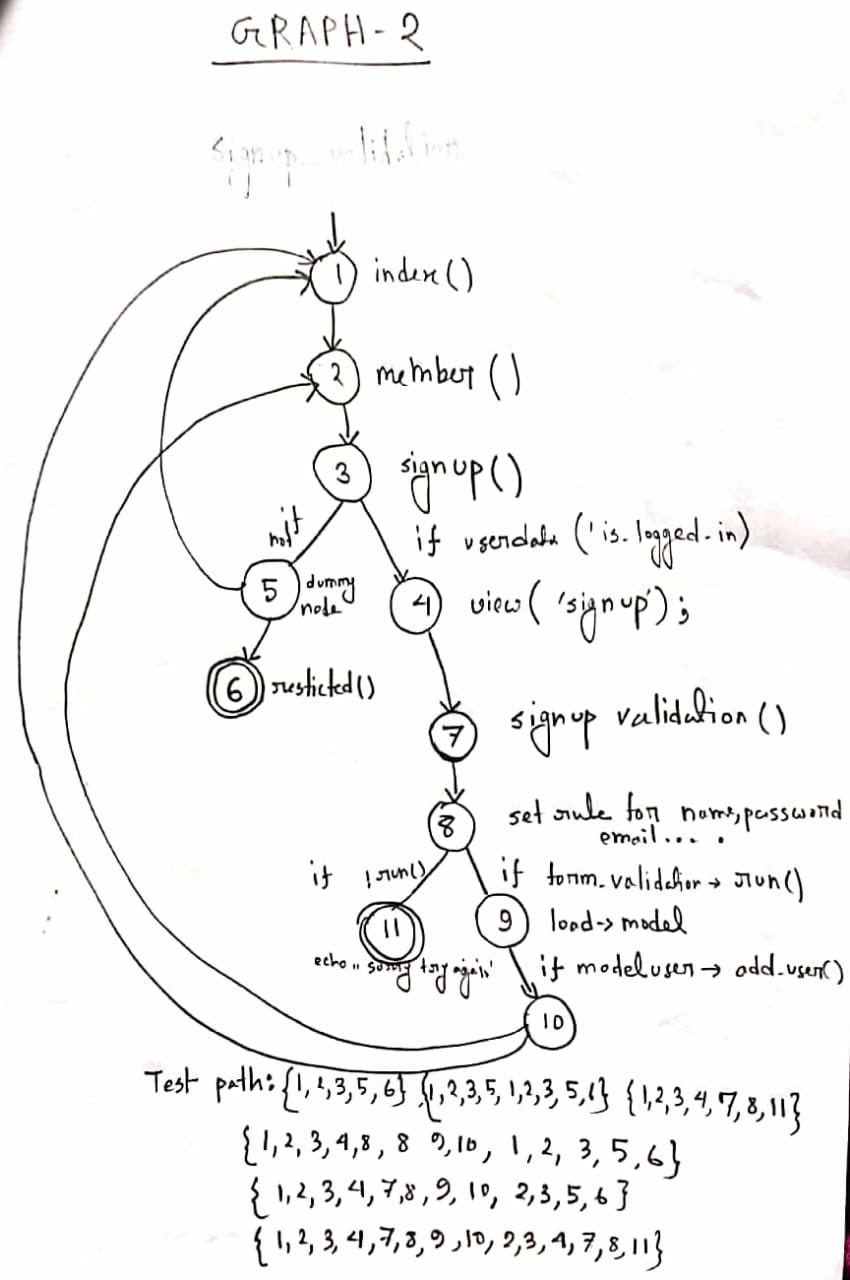 GRAPH-2
signup validation
1 index()
2 member()
3 signup()
if not
if userdata ('is-logged-in)
5 dummy node
4 view( 'signup');
6 resticted()
7 signup validation()
8 set rule for name, password
email....
if !run()
if form_validation → run()
11
9 load→ model
echo " sorry try again"
if model user → add-user()
10
Test path: {1,2,3,5,6} {1,2,3,5,1,2,3,5,6} {1,2,3,4,7,8,11}
{1,2,3,4,8, 8 9,10, 1,2, 3,5,6}
{ 1,2,3,4,7,8,9, 10, 2,3,5,6 }
{ 1,2,3,4,7,8,9,10,2,3,4,7,8,11}